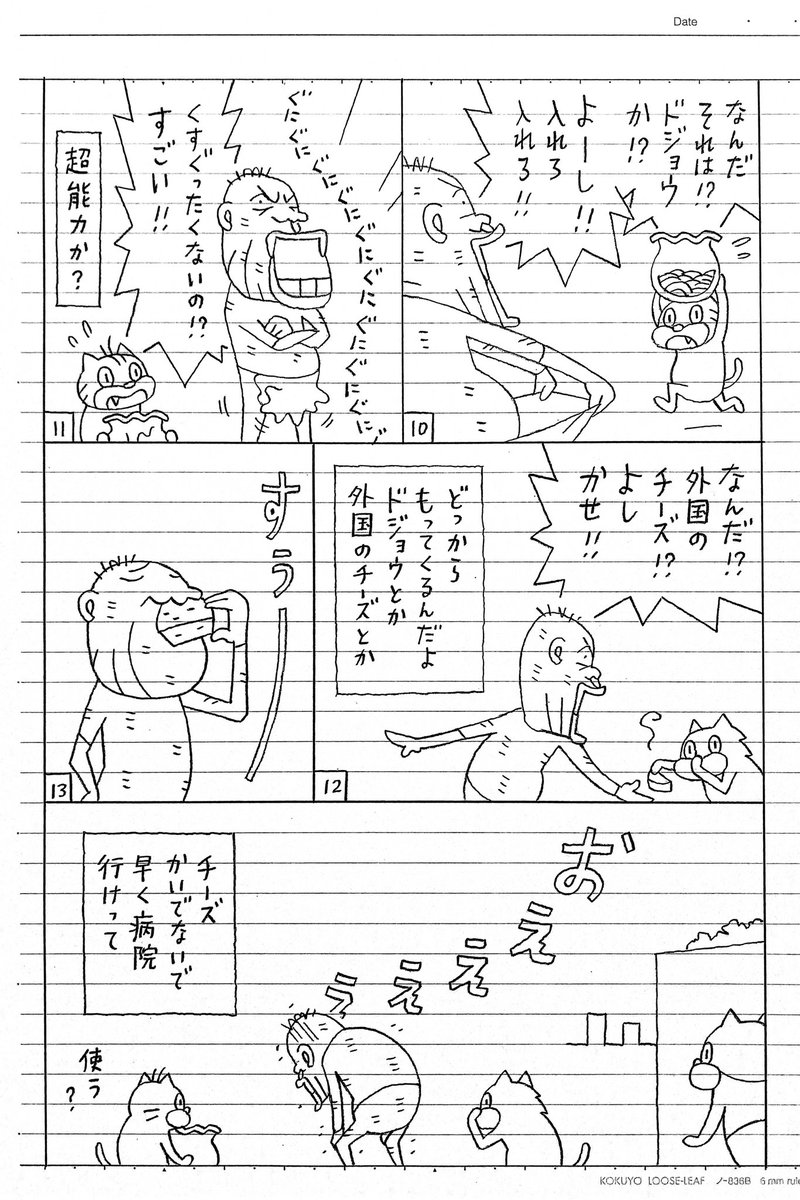 Date
なんだ
それは!?
ドジョウ
か!?
よーし!!
入れろ
入れろ!!
10
ぐにぐにぐにぐにぐにぐにぐにぐにぐに
くすぐったくないの!?
すごい!!
超能力か?
11
なんだ!?
外国の
チーズ!?
よし
かせ!!
どっから
もってくるんだよ
ドジョウとか
外国のチーズとか
12
すぅー
13
おえええぇ
チーズ
かいでないで
早く病院
行けって
使う?
KOKUYO LOOSE-LEAF ノ-836B 6 mm rule